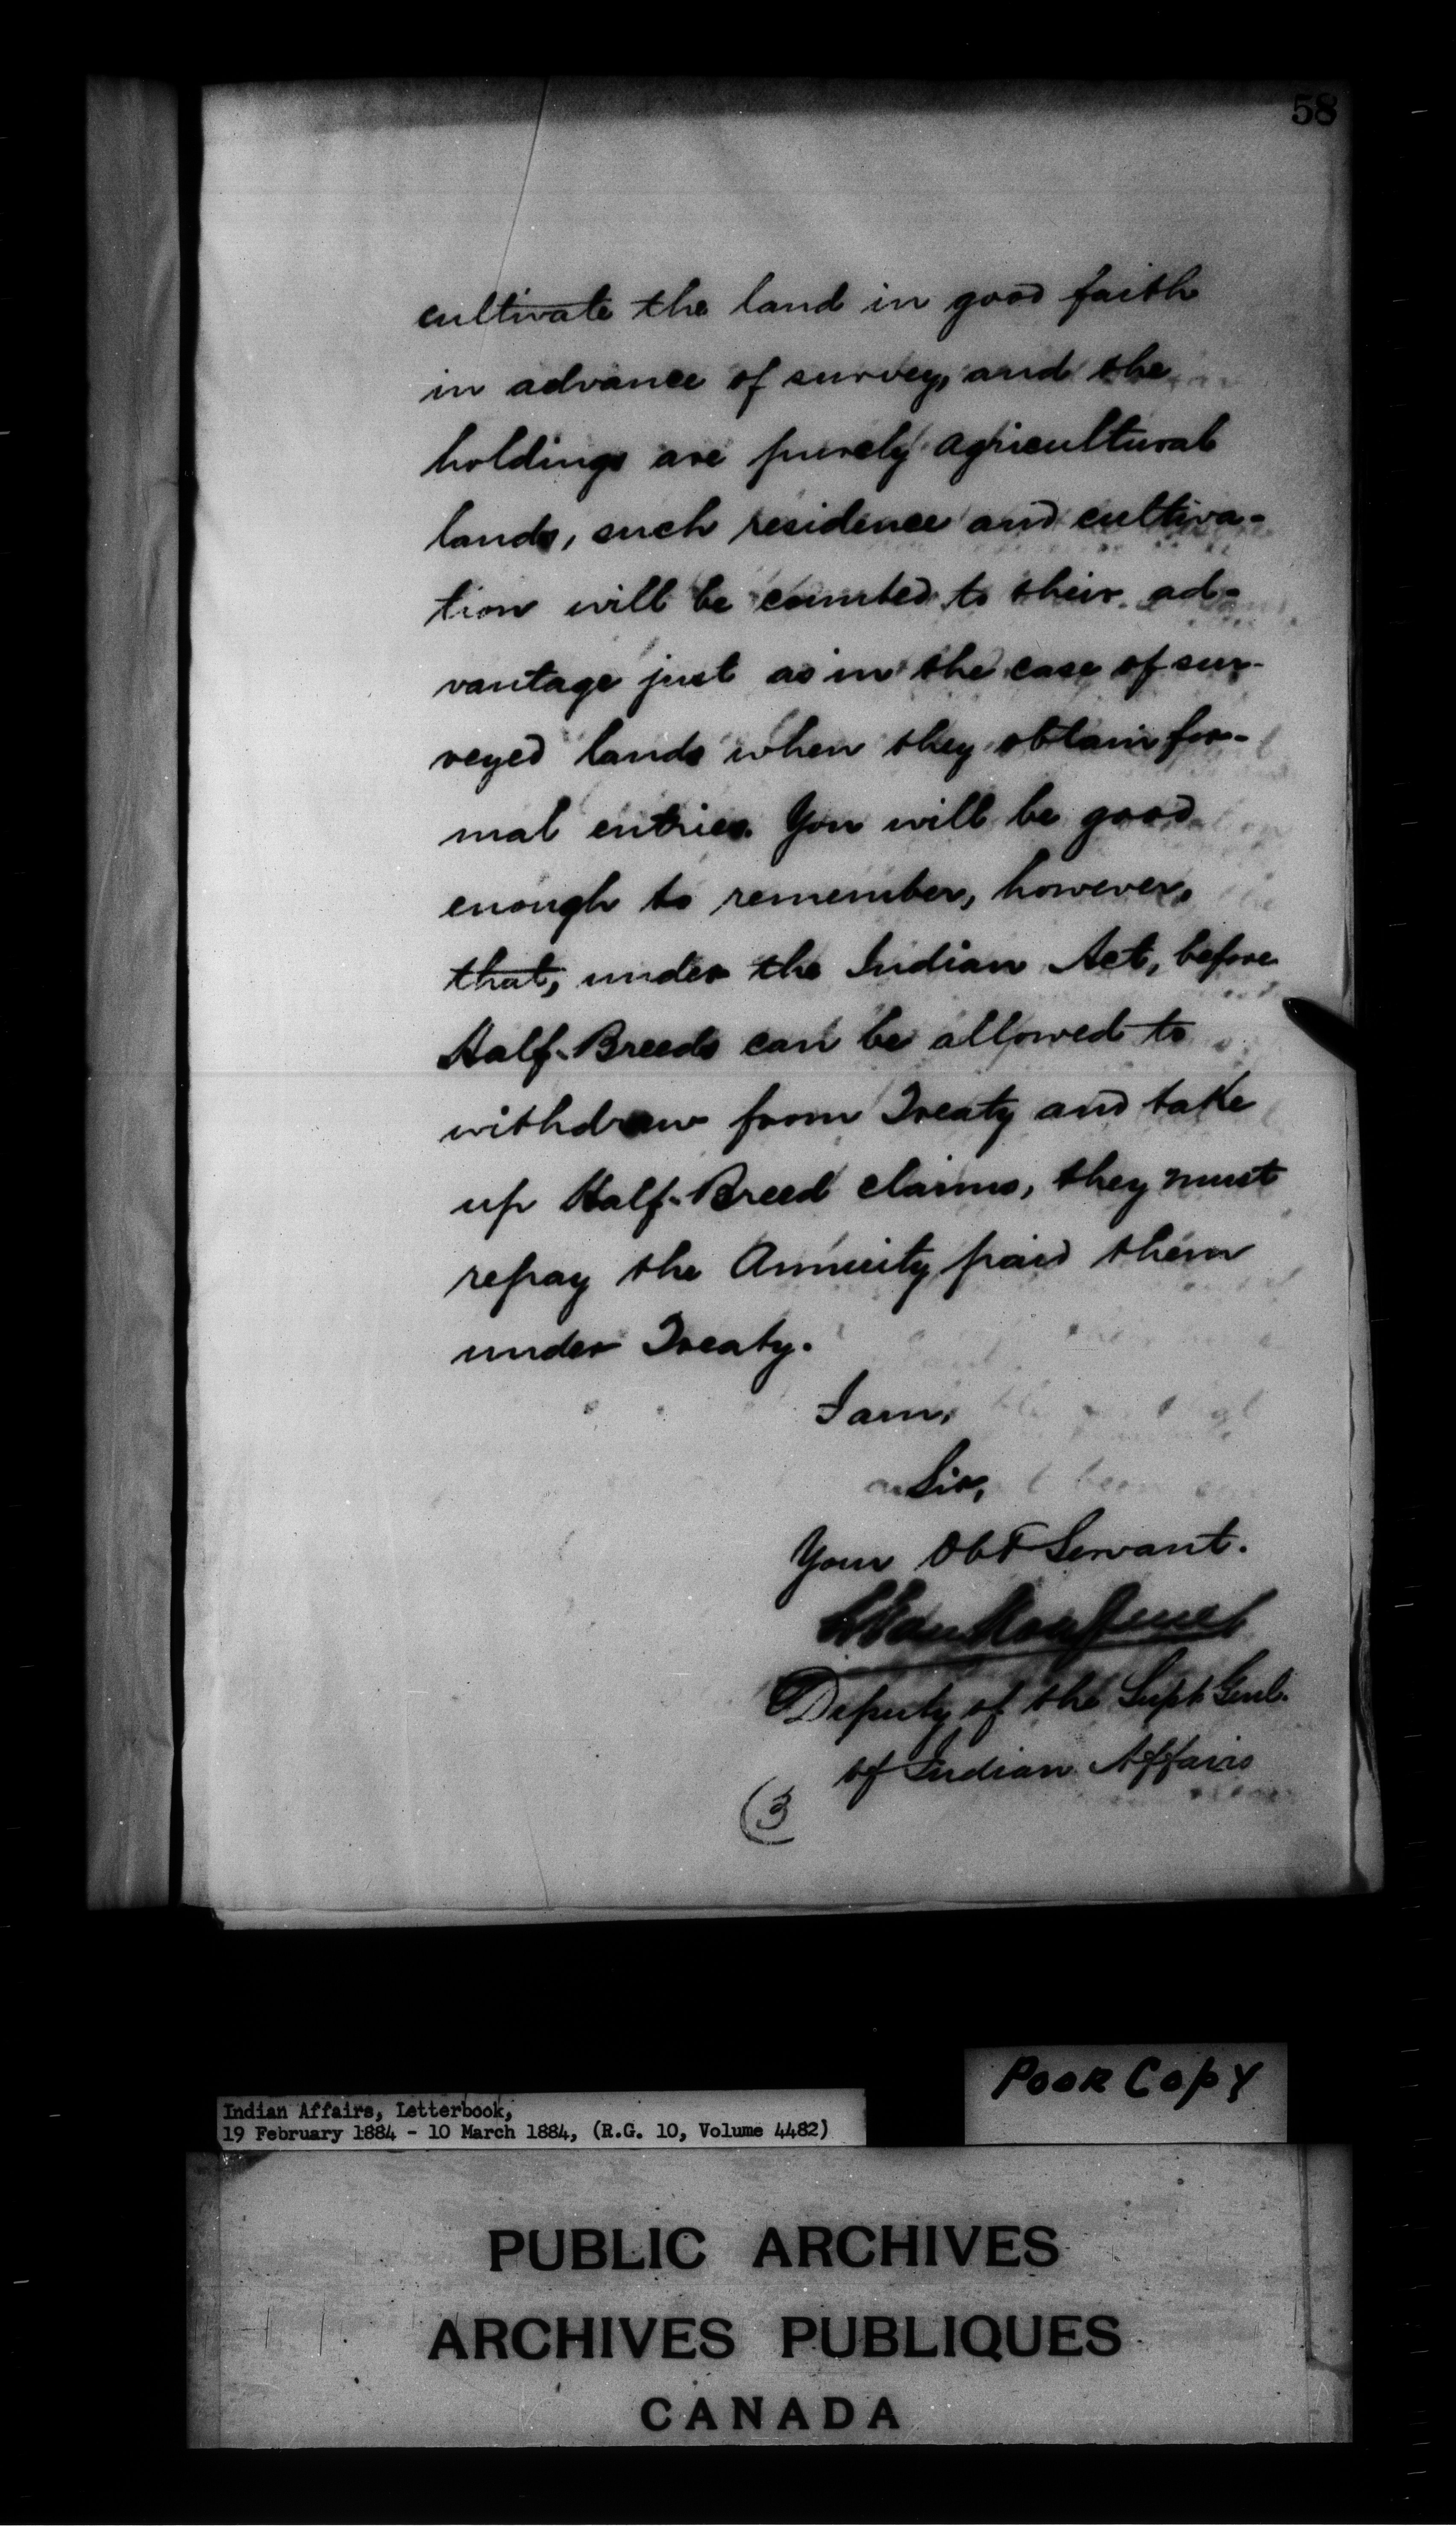 58
cultivate the land in good faith
in advance of survey, and the
holdings are purely agricultural
lands, such residence and cultiva-
tion will be counted to their ad-
vantage just as in the case of sur-
veyed lands when they obtain for-
mal entries. You will be good
enough to remember, however,
that, under the Indian Act, before
Half-Breeds can be allowed to
withdraw from Treaty and take
up Half-Breed claims, they must
repay the Annuity paid them
under Treaty.
I am,
Sir,
Your Obt Servant.
Deputy of the Supt Genl.
of Indian Affairs
(3
Poor Copy
Indian Affairs, Letterbook,
19 February 1884 - 10 March 1884, (R.G. 10, Volume 4482)
PUBLIC ARCHIVES
ARCHIVES PUBLIQUES
CANADA